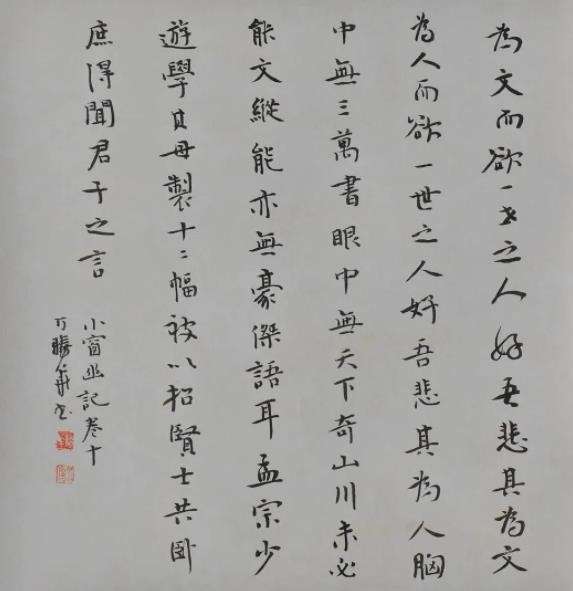 為文而欲一世之人好吾悲其為文
為人而欲一世之人好吾悲其為人胸
中無三萬書眼中無天下奇山川未必
能文縱能亦無豪傑語耳孟宗少
遊學其母製十二幅被以招賢士共卧
庶得聞君子之言
小窗幽記卷十